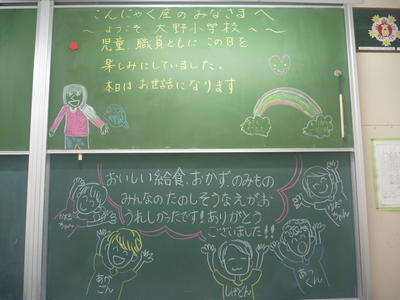 こんにゃく座のみなさまへ
〜ようこそ 大野小学校へ〜
児童、職員ともに この日を
楽しみにしていました。
本日は お世話になります
おいしい給食、おかず、のみもの
みんなの たのしそうなえがお
うれしかったです!ありがとう
ございました!!
ゆだちゃん
あき
こん
しゃどん
あっくん